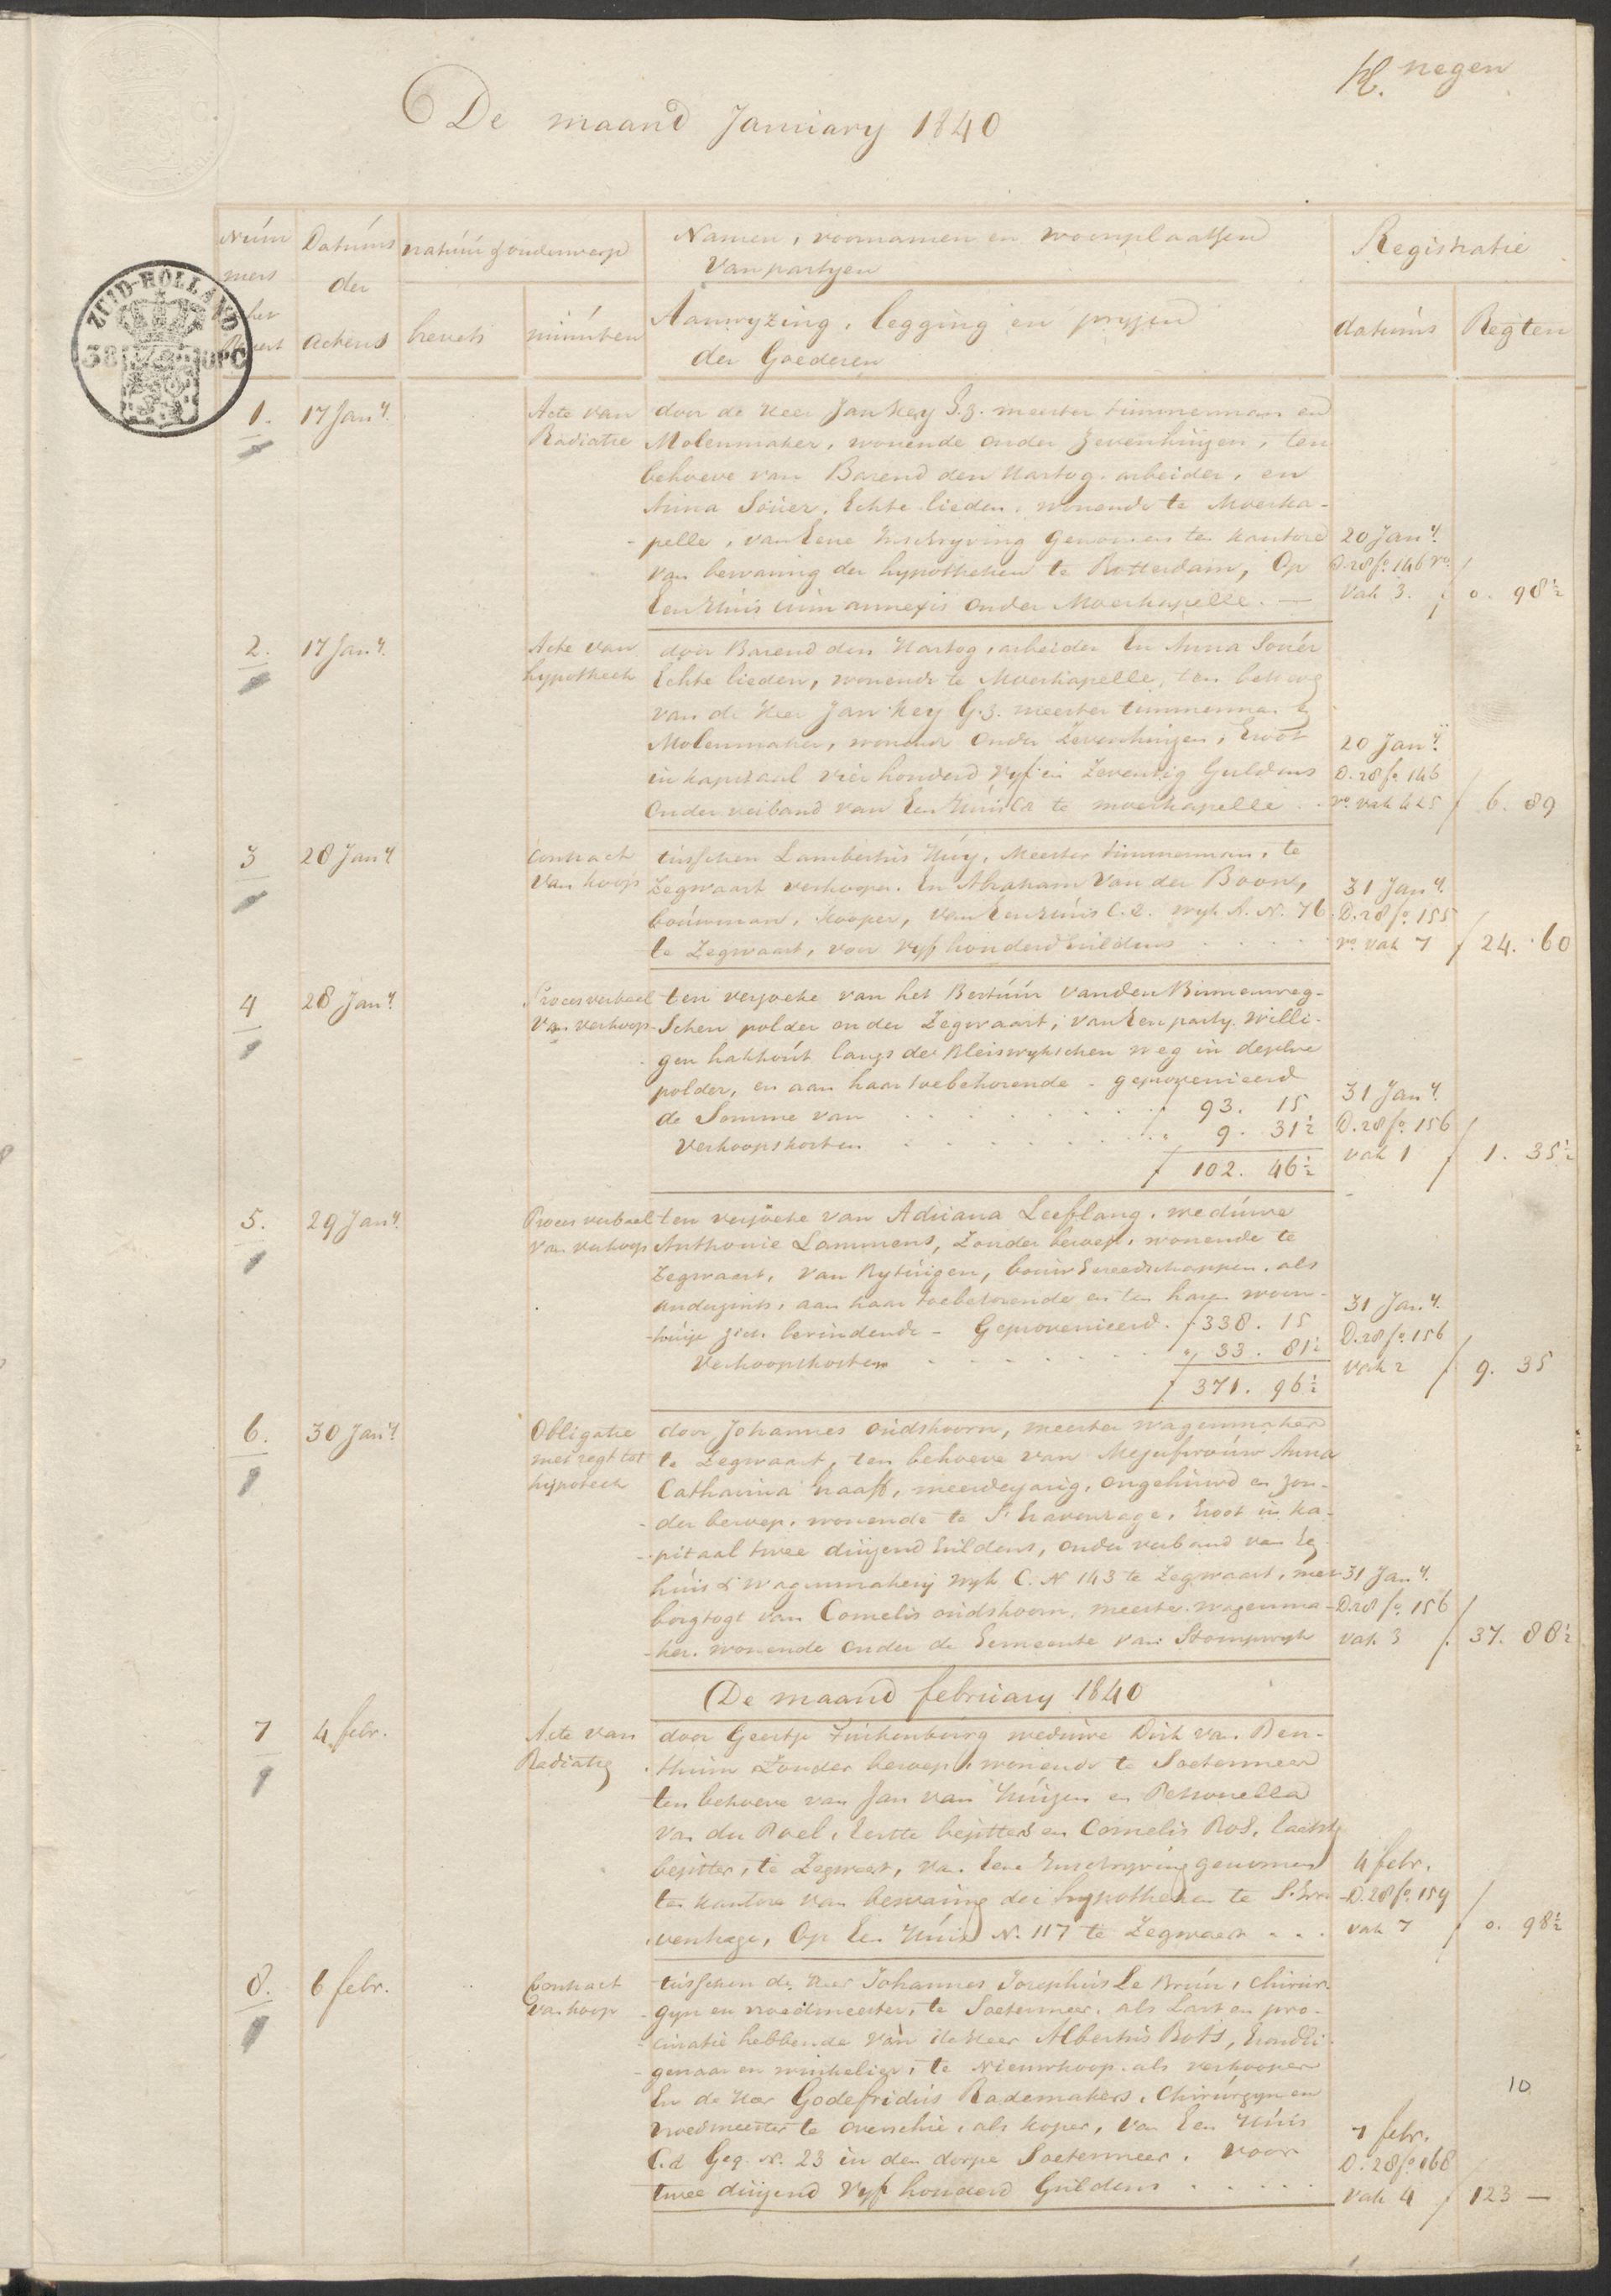 negen
De maand January 1840
Núm
mers
Datúms
der
actens
natúúr & onderwerp
brevets
minúten
Namen, voornamen en woonplaatsen
van partyen
Aanwyzing, legging en pryzen
der Goederen
Registratie
datúms
Regten
ZUID-HOLLAND
38
OPC
1.
17 Jany.
Acte van
Radiatie
door de Heer Jan Key G.z. meester timmerman en
Molenmaker, wonende onder Zevenhúizen, ten
behoeve van Barend den Hartog arbeider, en
Anna Soúer, Echte lieden, wonende te Moerka-
pelle, van Eene Inschryving genomen ten kantore
van bewaring der hypotheken te Rotterdam, Op
Een Húis cúm annexis onder Moerkapelle. —
20 Jany.
D. 28 fo. 146 vo.
Vak 3. f 0. 98½
2.
17 Jany.
Acte van
hypotheek
door Barend den Hartog, arbeider En Anna Soúer
Echte lieden, wonende te Moerkapelle, ten behoeve
van de Heer Jan Key G.z. meester timmerman &
Molenmaker, wonende onder Zevenhuizen, Groot
in kapitaal vier honderd vyf en Zeventig Guldens
Onder verband van Een Húis Ca te moerkapelle . .
20 Jany.
D. 28 fo. 146
vo. vak 4 & 5 f 6. 89
3
28 Jany
Contract
van koop
tússchen Lambertús Húy, Meester timmerman, te
Zegwaart verkooper. En Abraham van der Boon,
boúwman, kooper, van Een Húis C.a. wyk A. N. 76.
te Zegwaart, voor vyf honderd Guldens . . . .
31 Jany.
D. 28 fo. 155
vo. vak 7 f 24. 60
4
28 Jany.
Proces verbaal
van verkoop
ten verzoeke van het Bestúúr van den Binnenweg-
schen polder onder Zegwaart, van Een party Willi-
gen hakhoút langs de Bleiswykschen weg in dezelve
polder, en aan haar toebehorende - geprovenieerd
de Somme van . . . . . f 93. 15
Verkoopskosten . . . . . " 9. 31½
f 102. 46½
31 Jany.
D. 28 fo. 156
vak 1 f 1. 35½
5.
29 Jany.
Proces verbaal
van verkoop
ten verzoeke van Adriana Leeflang, wedúwe
Anthonie Lammens, Zonder beroep, wonende te
Zegwaart, van Rytúigen, boúw Gereedschappen, als
anderzints, aan haar toebehorende en ten haren woon-
húize zich bevindende - Geprovenieerd. f 338. 15
Verkoopskosten . . . . . " 33. 81½
f 371. 96½
31 Jany.
D. 28 fo. 156
vak 2 f 9. 35
6.
30 Jany.
Obligatie
met regt tot
hijpoteek
door Johannes oúdshoorn, meester wagenmaker
te Zegwaart, ten behoeve van Mejufvroúw Anna
Catharina Graaff, meerderjarig, ongehúwd en zon-
der beroep, wonende te S'Gravenhage, Groot in ka-
pitaal twee dúizend Gúldens, onder verband van Een
húis & wagenmakerij wyk C. N 143 te Zegwaart, met
borgtogt van Cornelis oúdshoorn, meester wagenma-
ker, wonende onder de Gemeente van Stompwyk
31 Jany.
D. 28 fo. 156
vak 3 f 37. 88½
De maand february 1840
7
4 febr.
Acte van
Radiatie
door Geertje Zúikenbúrg wedúwe Dirk van Ben-
thúim Zonder beroep, wonende te Soetermeer
ten behoeve van Jan van Húizen en Petronella
van der Poel, Eerste bezitters en Cornelis Bos, laatste
bezitter, te Zegwaart, van Eene Inschryving genomen
ten kantore van bewaring der hypotheken te S'Gra-
venhage, Op Een Húis N. 117 te Zegwaart . . .
4 febr.
D. 28 fo. 159
vak 7 f 0. 98½
8.
6 febr.
Contract
van koop
tússchen de Heer Johannes Josephús Le Brún, chirúr-
gyn en vroedmeester, te Soetermeer, als Last en pro-
cúratie hebbende van de Heer Albertús Bots, Grondei-
genaar en winkelier, te Nieuwkoop, als verkooper
En de Heer Godefridús Rademakers, Chirúrgyn en
vroedmeester te overschie, als koper, van Een Húis
C.a Geq. N. 23 in den dorpe Soetermeer, voor
twee dúizend vyf honderd Gúldens . . . . .
7 febr.
D. 28 fo. 168
vak 4 f 123 —
10